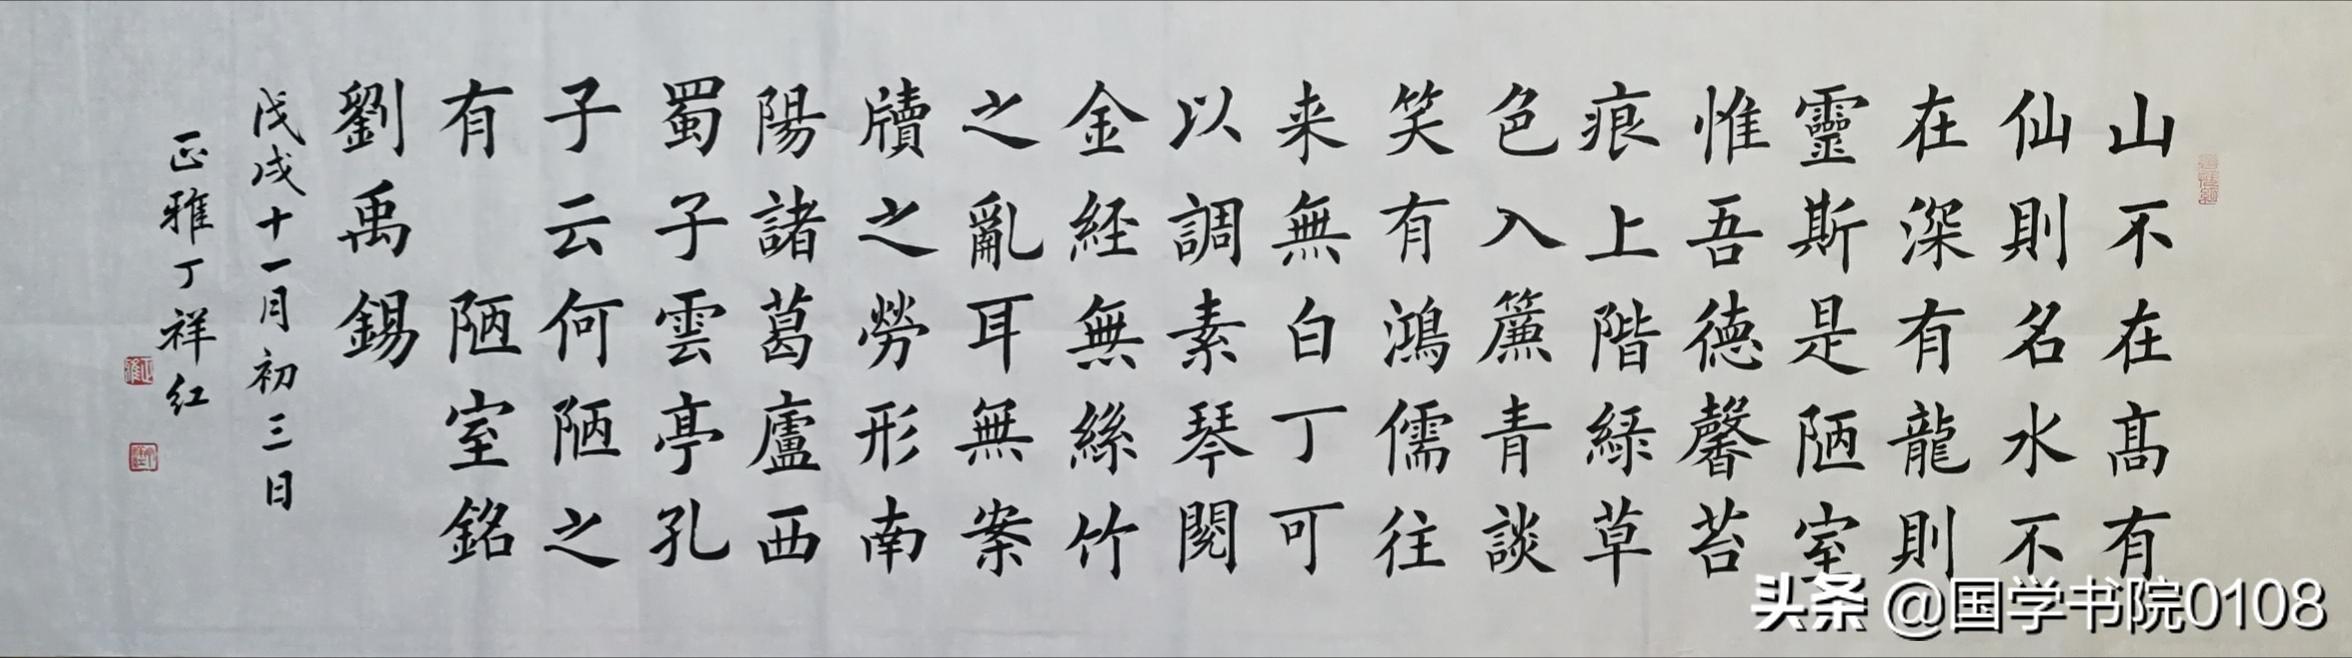 山不在高有
仙則名水不
在深有龍則
靈斯是陋室
惟吾德馨苔
痕上階緑草
色入簾青談
笑有鴻儒往
来無白丁可
以調素琴閱
金経無絲竹
之亂耳無案
牘之勞形南
陽諸葛廬西
蜀子雲亭孔
子云何陋之
有 陋室銘
劉禹錫
戊戌十一月初三日
正雅丁祥红
头条 @国学书院0108